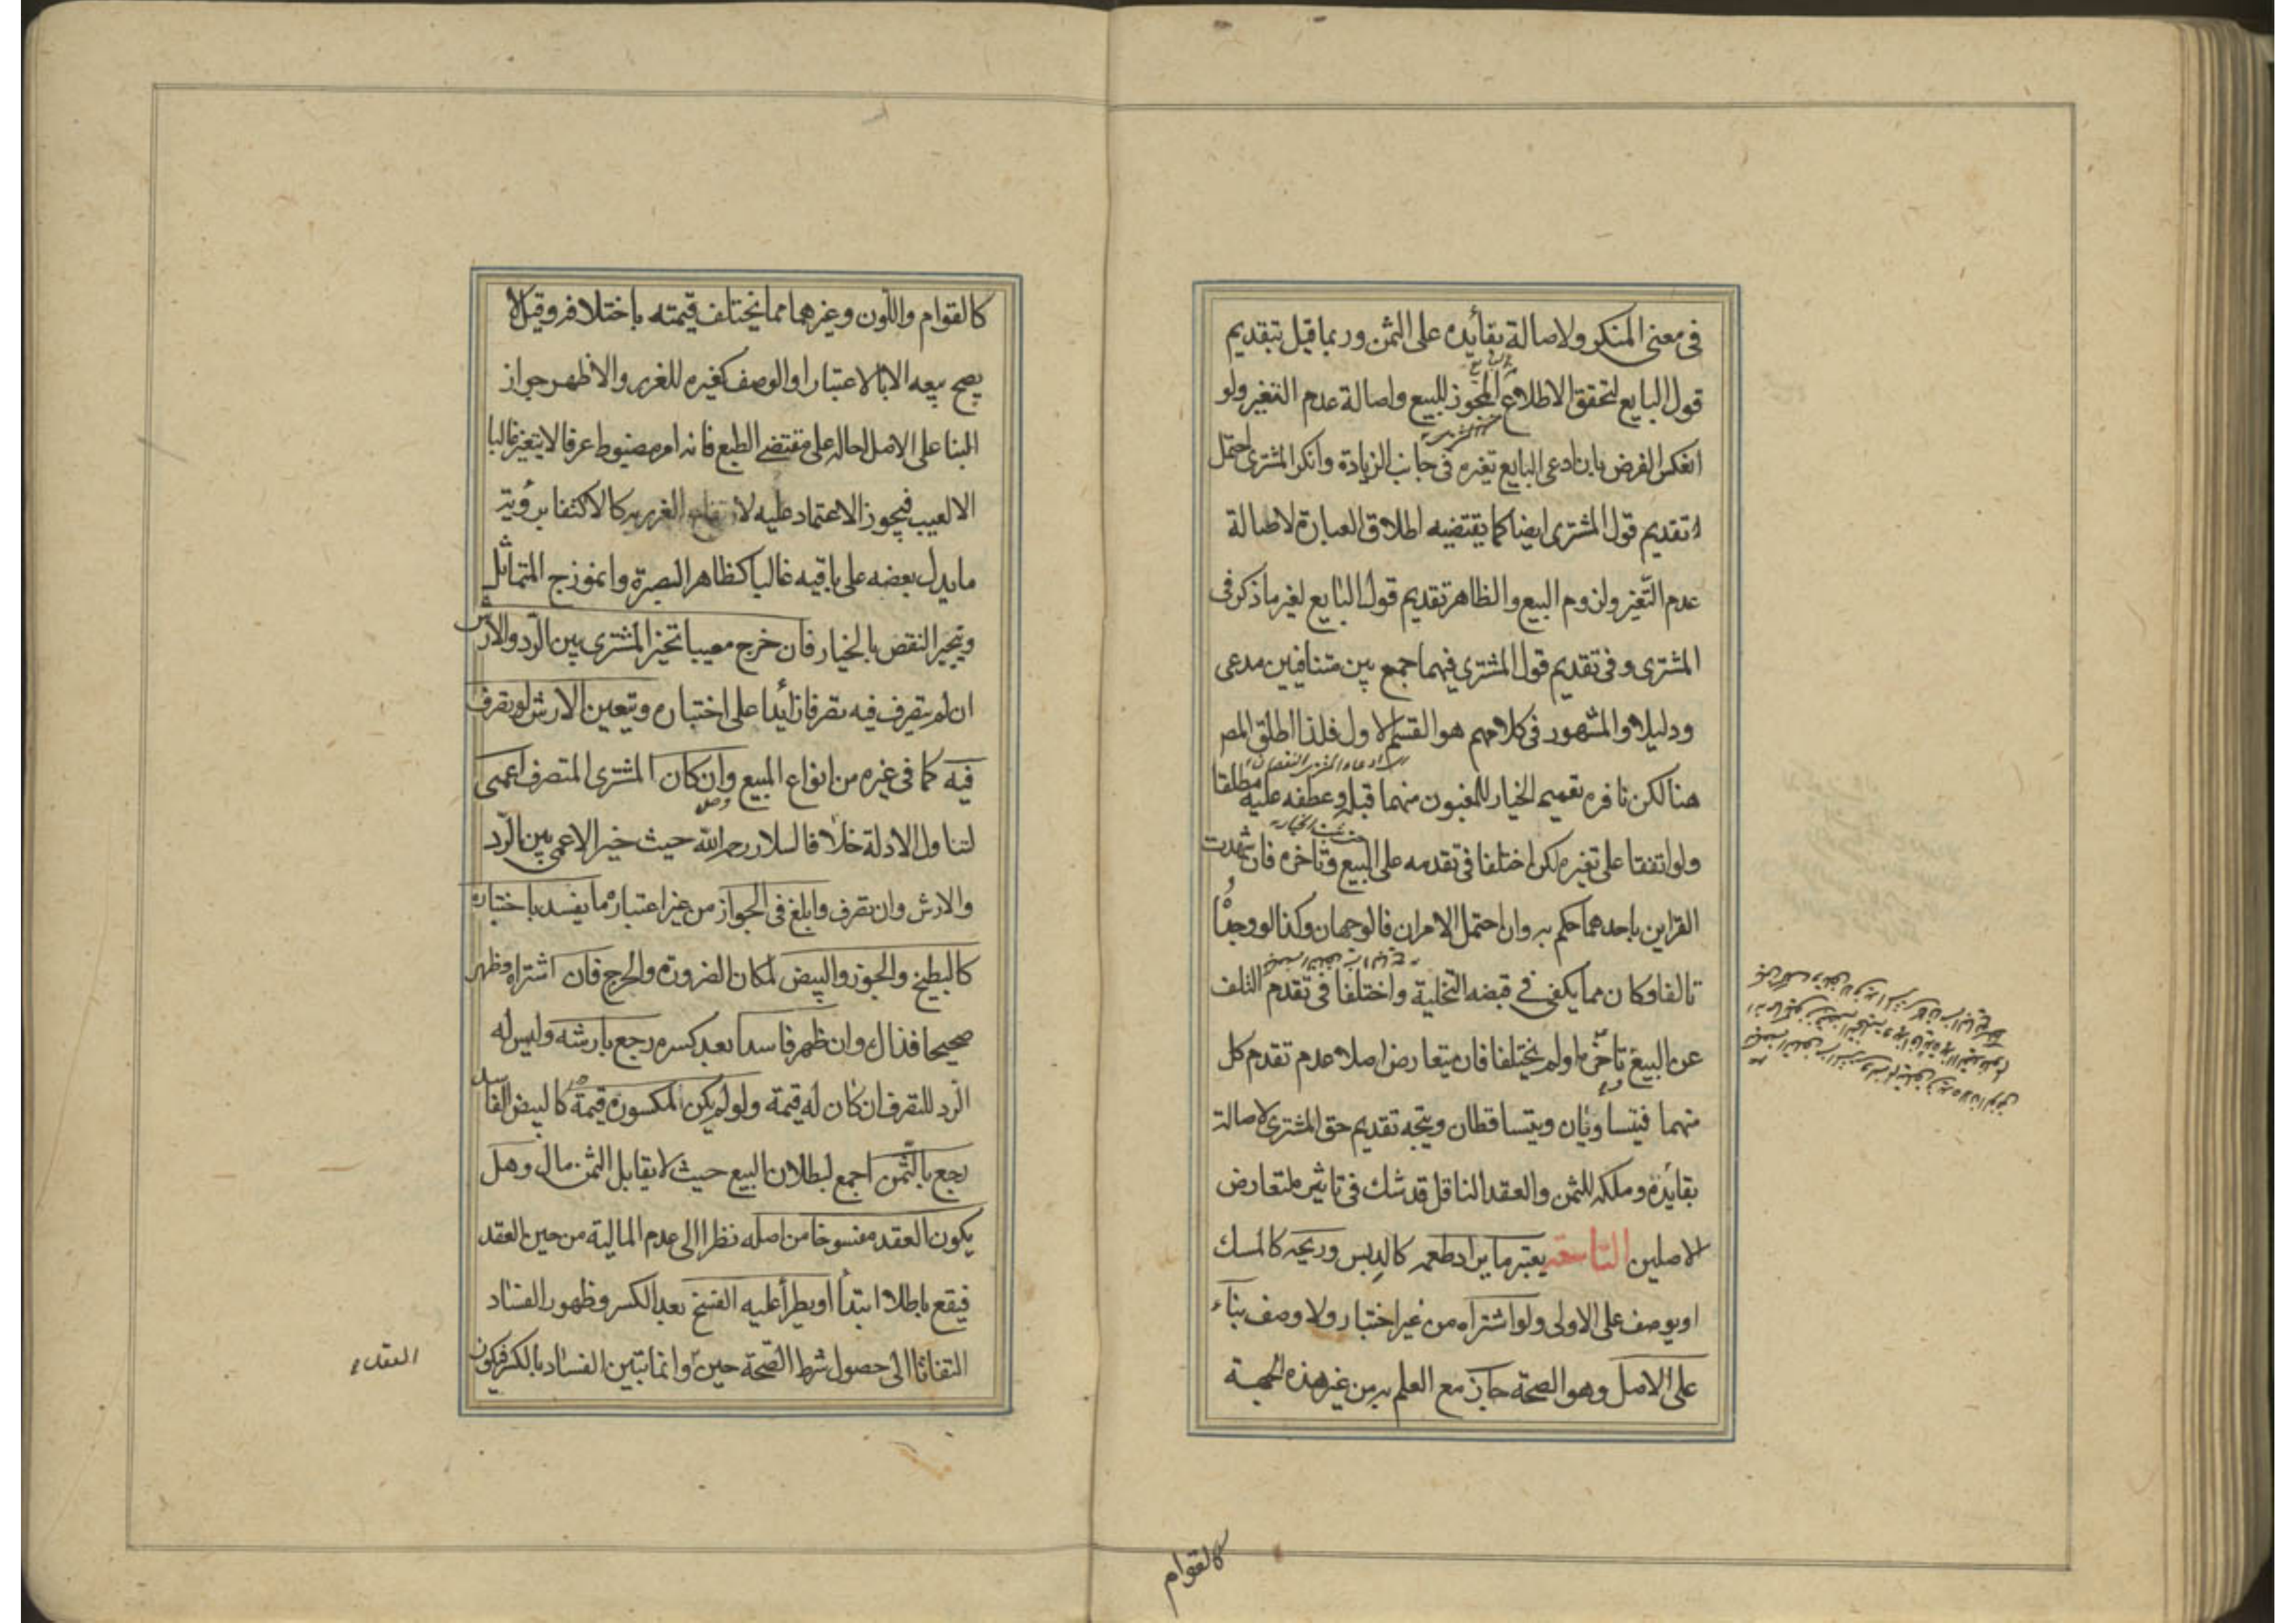 في معنى المنكر ولاصالة بقائده على الثمن وربما قيل بتقديم
قول البايع لتحقق الاطلاع المجوز للبيع واصالة عدم التغير ولو
انعكس الفرض بان ادعى البايع تغيره في جانب الزيادة وانكر المشترى احتمل
تقديم قول المشترى ايضا كما يقتضيه اطلاق العبارة لاصالة
عدم التغير ولزوم البيع والظاهر تقديم قول البايع لغير ما ذكر في
المشترى وفى تقديم قول المشترى فيهما جمع بين متنافيين مدعى
ودليلا والمشهور في كلامهم هو القسم الاول فلذا اطلق المص
هنا لكن نافره تعميم الخيار للمغبون منهما قبله وعطفه عليه مطلقا
ولو اتفقا على تغيره لكن اختلفا في تقدمه على البيع وتاخره فان شهدت
القراين باحدهما حكم به وان احتمل الامران فالوجهان وكذا لو وجداه
تالفا وكان مما يكفى في قبضه التخلية واختلفا في تقدم التلف
عن البيع وتاخره او لم يختلفا فان تعارض اصلا عدم تقدم كل
منهما فيتساويان ويتساقطان ويتجه تقديم حق المشترى لاصالة
بقائده وملكه للثمن والعقد الناقل قد شك في تاثيره لتعارض
الاصلين التاسعة يعتبر ما يراد طعمه كالدبس وريحه كالمسك
او يوصف على الاولى ولو اشتراه من غير اختبار ولا وصف بناء
على الاصل وهو الصحة جاز مع العلم به من غير هذه الجهة
كالقوام
كالقوام واللون وغيرهما مما يختلف قيمته باختلافه وقيل لا
يصح بيعه الا بالاعتبار او الوصف كغيره للغرر والاظهر جواز
البنا على الاصل احاله على مقتضى الطبع فانه امر مضبوط عرفا لا يتغير غالبا
الا لعيب فيجوز الاعتماد عليه لارتفاع الغرر به كالاكتفا برؤية
ما يدل بعضه على باقيه غالبا كظاهر الصبرة وانموذج المتماثل
ويجبر النقص بالخيار فان خرج معيبا تخير المشترى بين الرد والارش
ان لم يتصرف فيه تصرفا زائدا على اختباره ويتعين الارش لو تصرف
فيه كما في غيره من انواع المبيع وان كان المشترى المتصرف اعمى
لتناول الادلة خلافا لسلار رحمه الله حيث خير الاعمى بين الرد
والارش وان تصرف وابلغ في الجواز من غير اعتبار ما يفسد باختباره
كالبطيخ والجوز والبيض لمكان الضرورة والحرج فان اشتراه وظهر
صحيحا فذاك وان ظهر فاسدا بعد كسره رجع بارشه وليس له
الرد للتصرف ان كان له قيمة ولو لم يكن لمكسوره قيمة كالبيض الفاسد
رجع بالثمن اجمع لبطلان البيع حيث لا يقابل الثمن مال وهل
يكون العقد مفسوخا من اصله نظرا الى عدم المالية من حين العقد
فيقع باطلا ابتدأ او يطرأ عليه الفسخ بعد الكسر وظهور الفساد
التفاتا الى حصول شرط الصحة حينه وانما تبين الفساد بالكسر فيكون
العقد